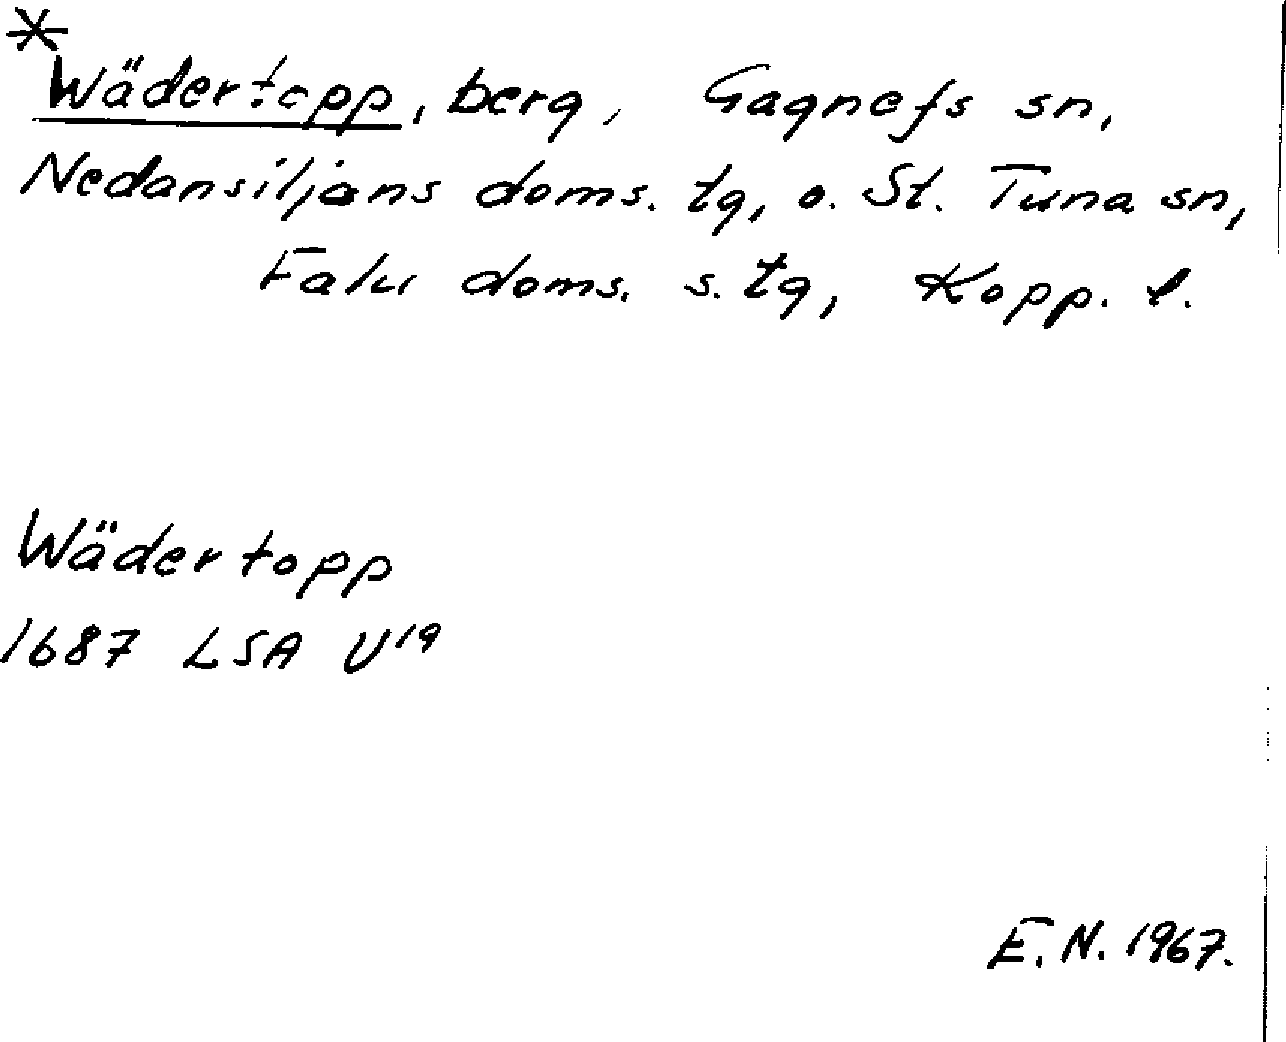 *
Wädertopp, berg, Gagnefs sn,
Nedansiljans doms. tg, o. St. Tuna sn,
Falu doms. s. tg, Kopp. l.
Wädertopp
1687 LSA U19
E. N. 1967.